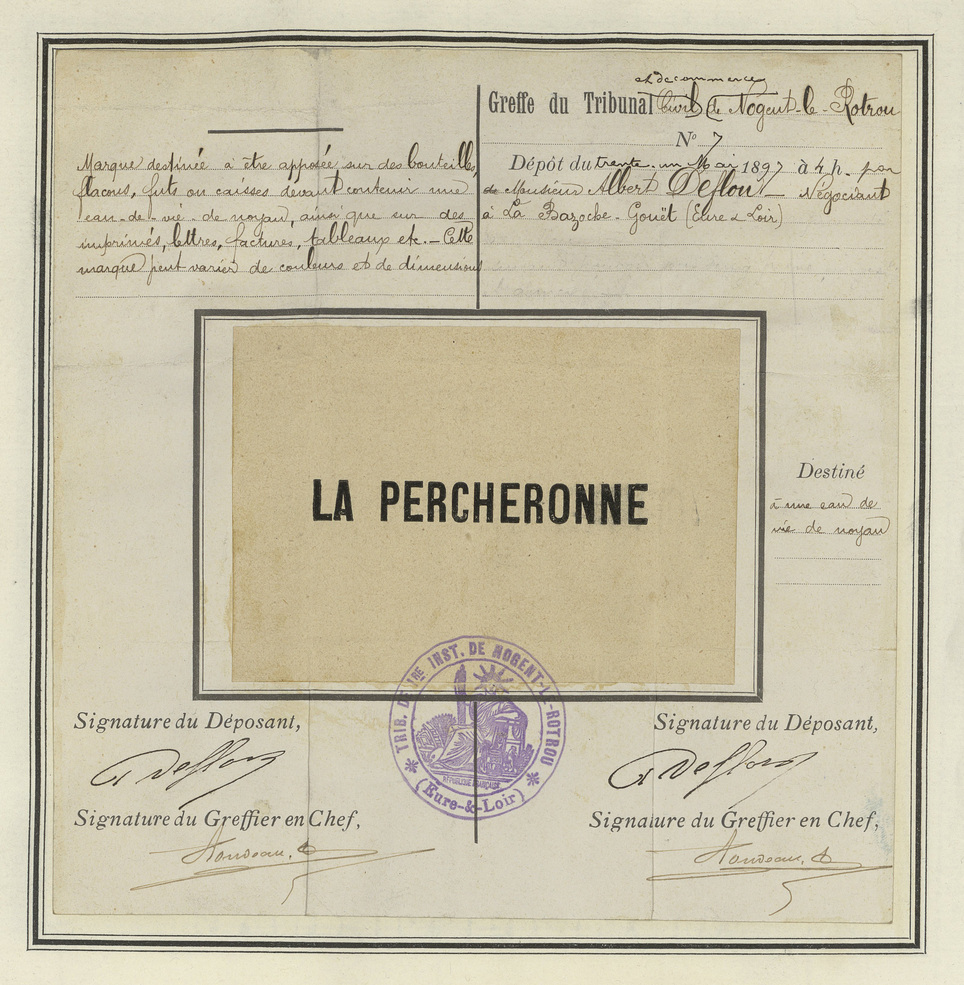 Marque destinée à être apposée sur des bouteilles,
flacons, futs ou caisses devant contenir une
eau-de-vie de noyau, ainsi que sur des
imprimés, lettres, factures, tableaux etc. — Cette
marque peut varier de couleurs et de dimensions
et de commerce
Greffe du Tribunal Civil de Nogent-le-Rotrou
N° 7
Dépôt du trente-un Mai 1897 à 4 h. par
Monsieur Albert Deflou — Négociant
à La Bazoche-Gouët (Eure & Loir)
LA PERCHERONNE
Destiné
à une eau de
vie de noyau
TRIB. DE 1RE INST. DE NOGENT-LE-ROTROU
RÉPUBLIQUE FRANÇAISE
(Eure-&-Loir)
Signature du Déposant,
A Deflou
Signature du Greffier en Chef,
Signature du Déposant,
A Deflou
Signature du Greffier en Chef,